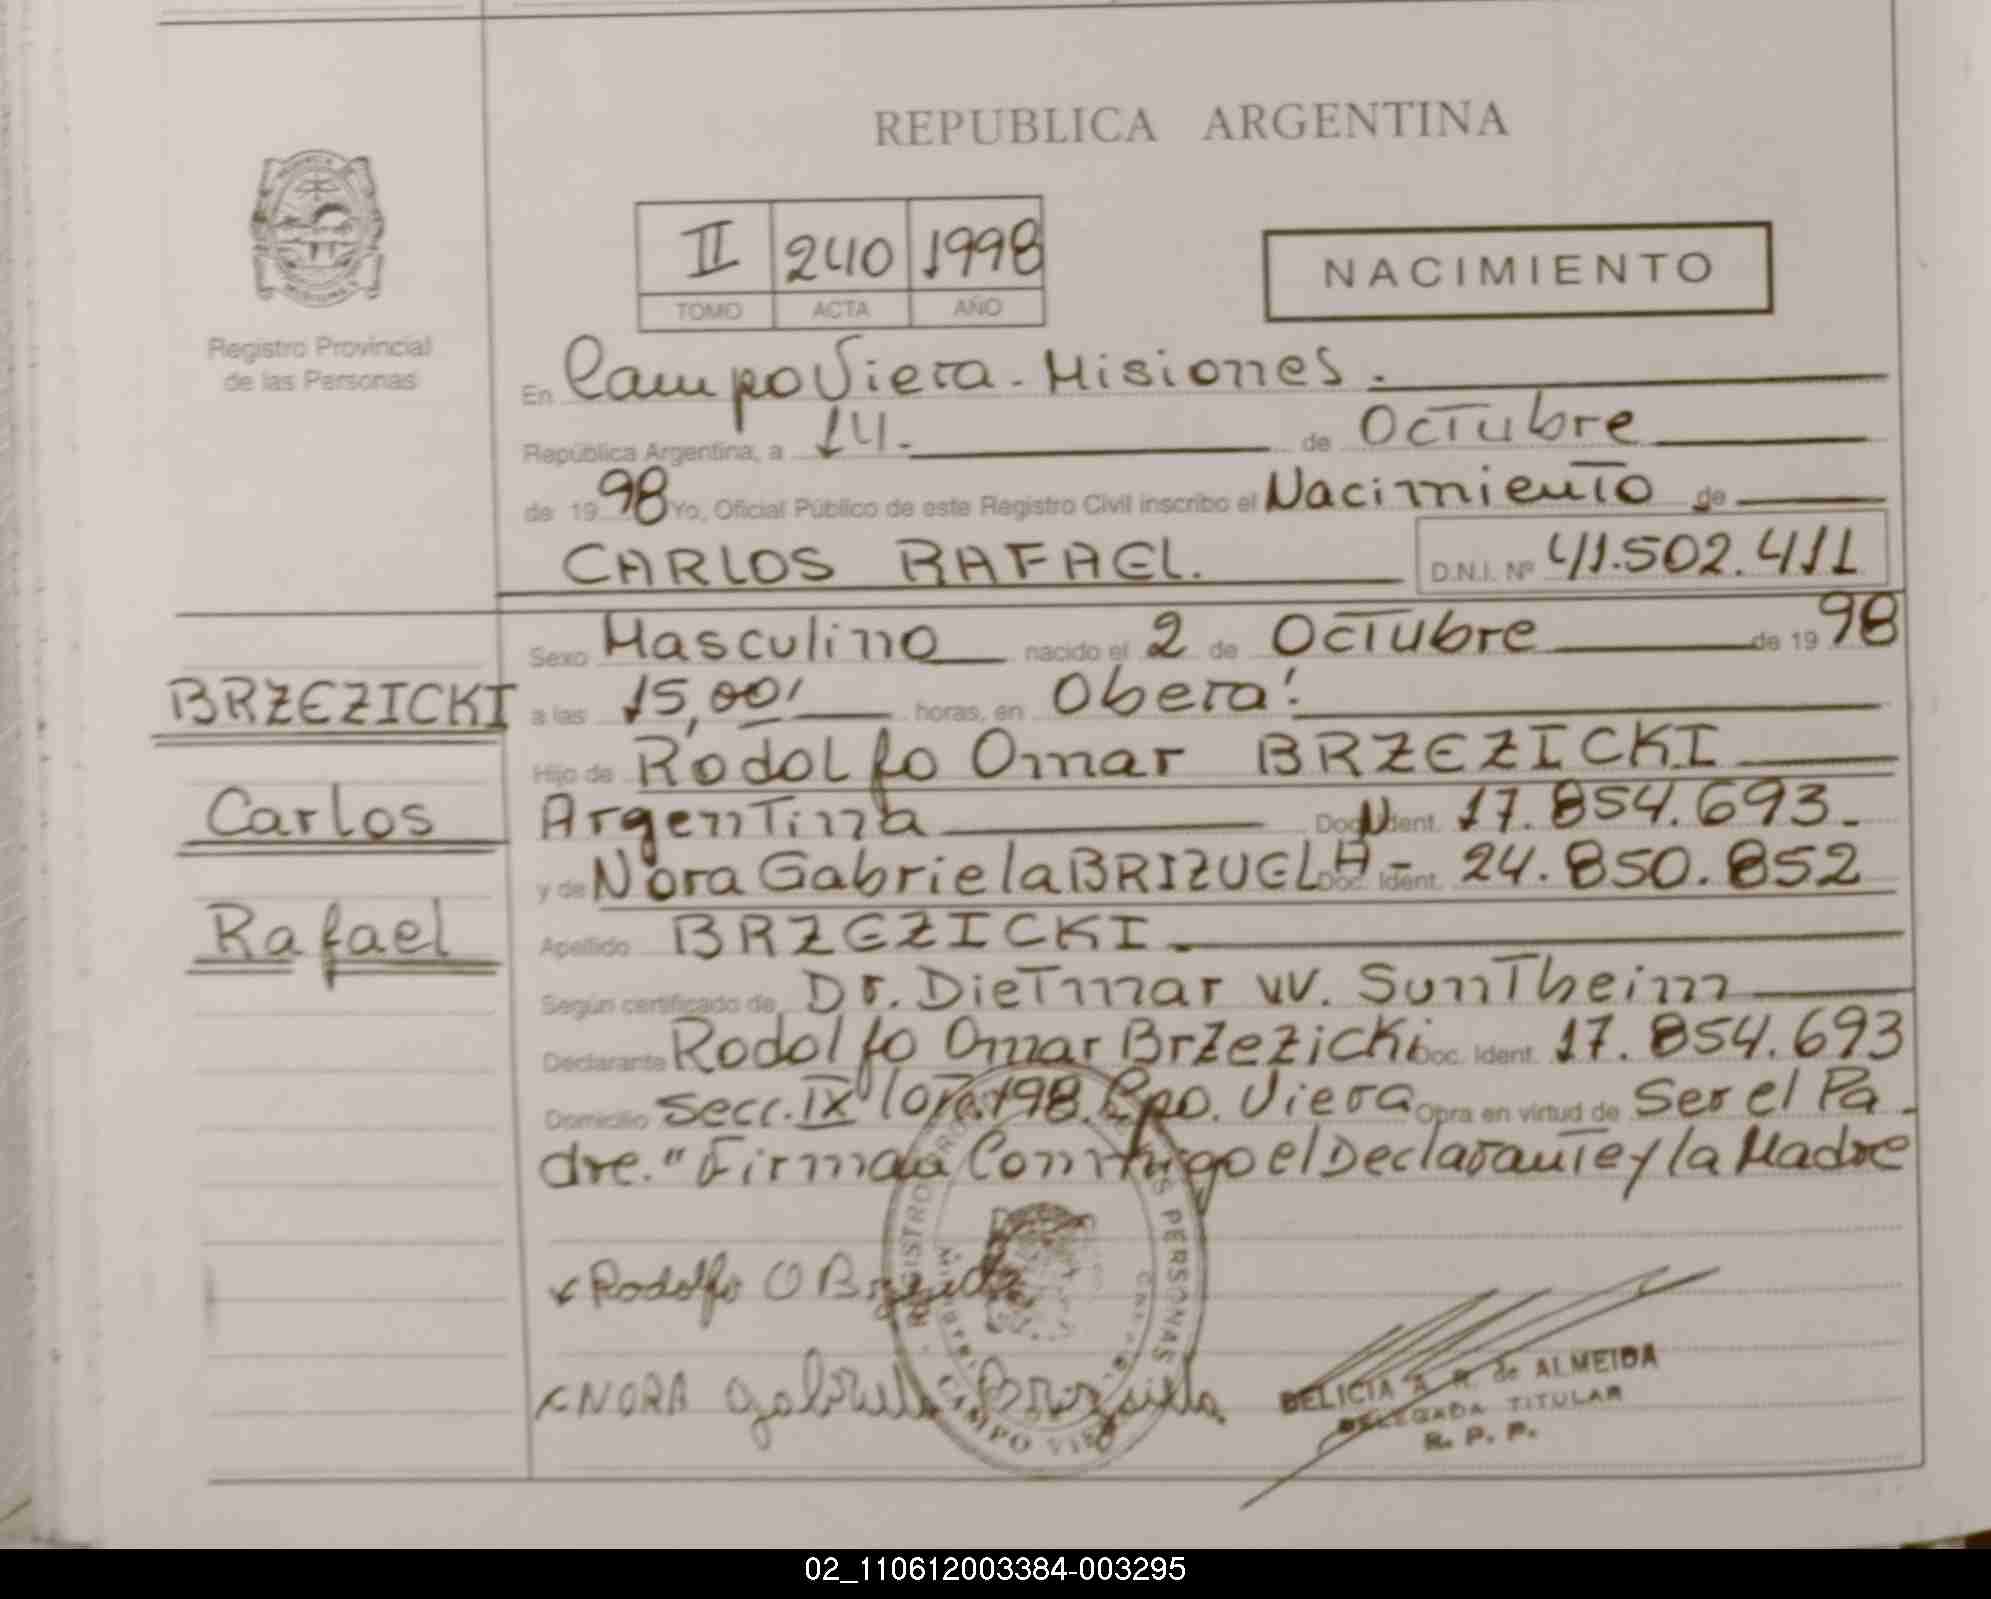 REPUBLICA ARGENTINA
II 240 1998
TOMO ACTA AÑO
NACIMIENTO
Registro Provincial
de las Personas
En Campo Viera - Misiones.
República Argentina, a 14. de Octubre
de 1998 Yo, Oficial Público de este Registro Civil inscribo el Nacimiento de
CARLOS RAFAEL. D.N.I. Nº 41.502.411
Sexo Masculino nacido el 2 de Octubre de 1998
BRZEZICKI
Carlos
Rafael
a las 15,00' horas, en Oberá.
Hijo de Rodolfo Omar BRZEZICKI
Argentina Doc. N Ident. 17.854.693.-
y de Nora Gabriela BRIZUELA - Doc. Ident. 24.850.852
Apellido BRZEZICKI.
Según certificado de Dr. Dietmar W. Suntheim
Declarante Rodolfo Omar Brzezicki Doc. Ident. 17.854.693
Domicilio Secc. IX lote 198. Cpo. Viera Obra en virtud de Ser el Pa-
dre." Firman Conmigo el Declarante y la Madre
Rodolfo O
NORA Gabriela Brizuela
PERSONAS
CAMPO VIERA
DELICIA A. R. de ALMEIDA
DELEGADA TITULAR
R. P. P.
02_110612003384-003295